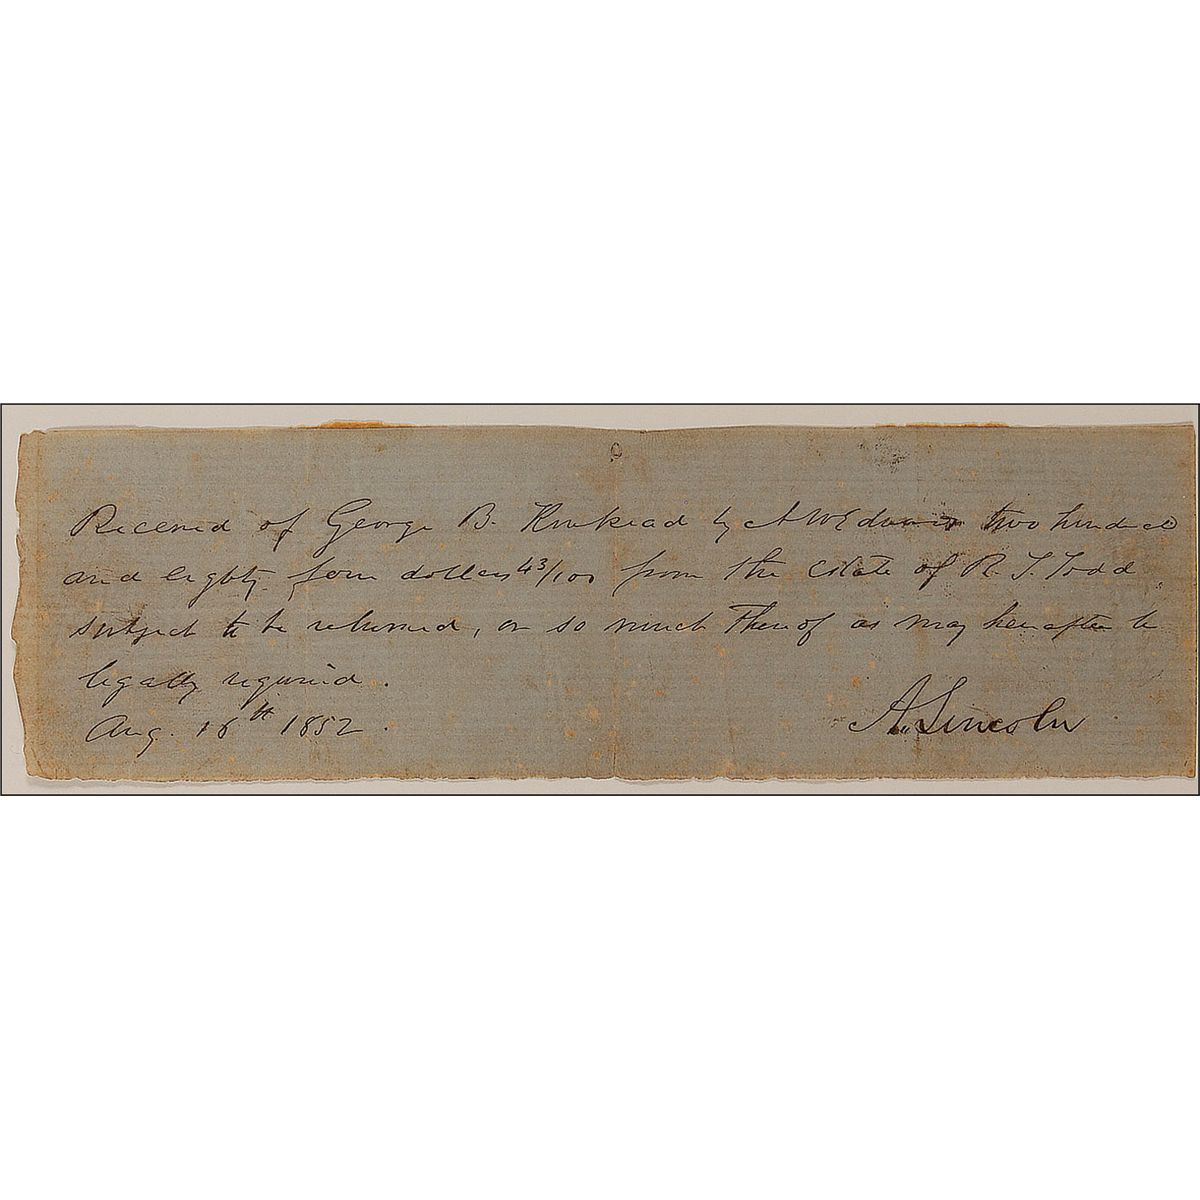 Received of George B. Kinkead by N W Edwards two hundred
and eighty four dollars 43/100 from the estate of R. S. Todd,
subject to be returned, or so much thereof as may hereafter be
legally required.
Aug. 16th 1852.
A. Lincoln